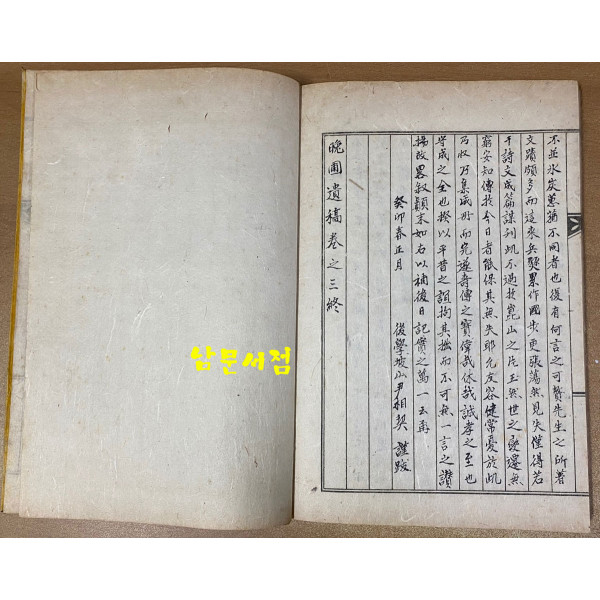 不並氷炭薰蕕不同者也復有何言之可贅先生之所著
文蹟頗多而這來兵燹累作國步更張蕩然見失僅得若
干詩文成篇謀刊此不過於崑山之片玉無世之變遷無
窮安知傳於今日者能保其無失耶允友容健常憂於此
乃收乃集成册而完遂壽傳之寶偉哉休哉誠孝之至也
守成之全也揆以平昔之誼拘其拙而不可無一言之讃
揚故畧叙顚末如右以補後日記實之萬一云爾
癸卯春正月
後學坡山尹相契 謹跋
晩圃遺稿卷之三終
남문서점